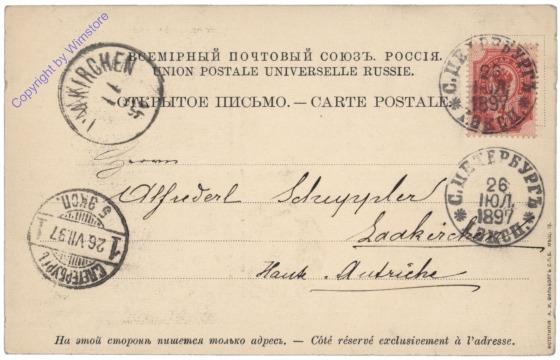 Copyright by Wimstore
ВСЕМІРНЫЙ ПОЧТОВЫЙ СОЮЗЪ. РОССІЯ.
UNION POSTALE UNIVERSELLE RUSSIE.
ОТКРЫТОЕ ПИСЬМО. — CARTE POSTALE.
С.ПЕТЕРБУРГЪ
26
ІЮЛ.
1897
KIRCHEN
Herrn
С.ПЕТЕРБУРГЪ
26
ІЮЛ.
1897
5 ЭКСП.
1 26 VII 97 1
С.ПЕТЕРБУРГЪ
Laakirchen
Autriche
На этой сторонѣ пишется только адресъ. — Côté réservé exclusivement à l'adresse.